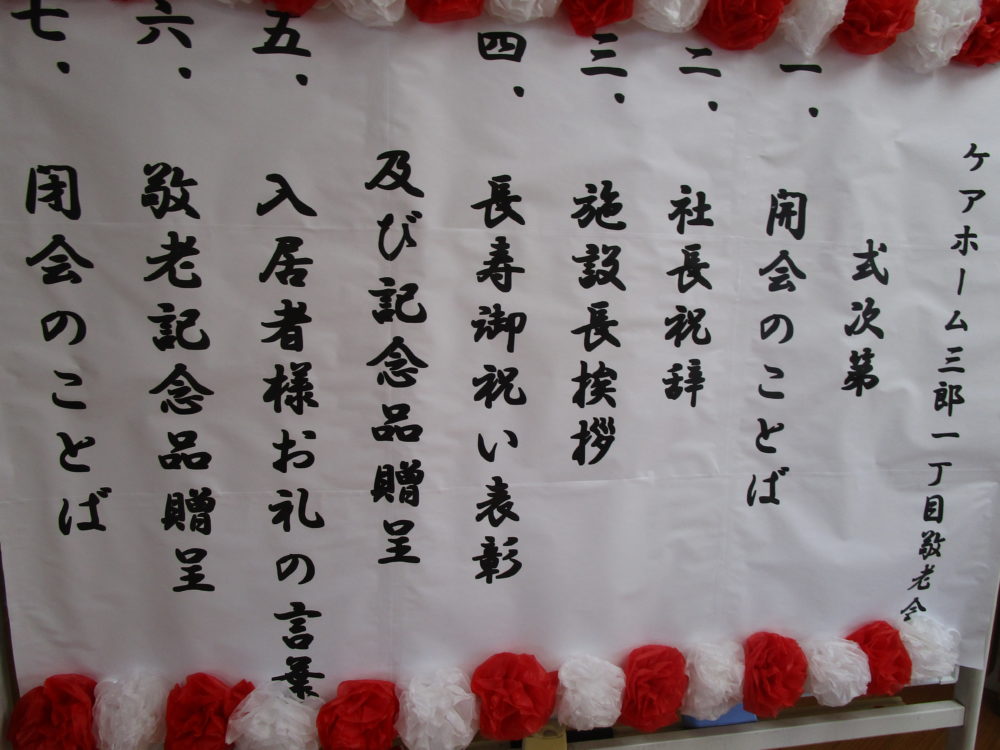 ケアホーム三郎一丁目敬老会
式次第
一．開会のことば
二．社長祝辞
三．施設長挨拶
四．長寿御祝い表彰
及び記念品贈呈
五．入居者様お礼の言葉
六．敬老記念品贈呈
七．閉会のことば